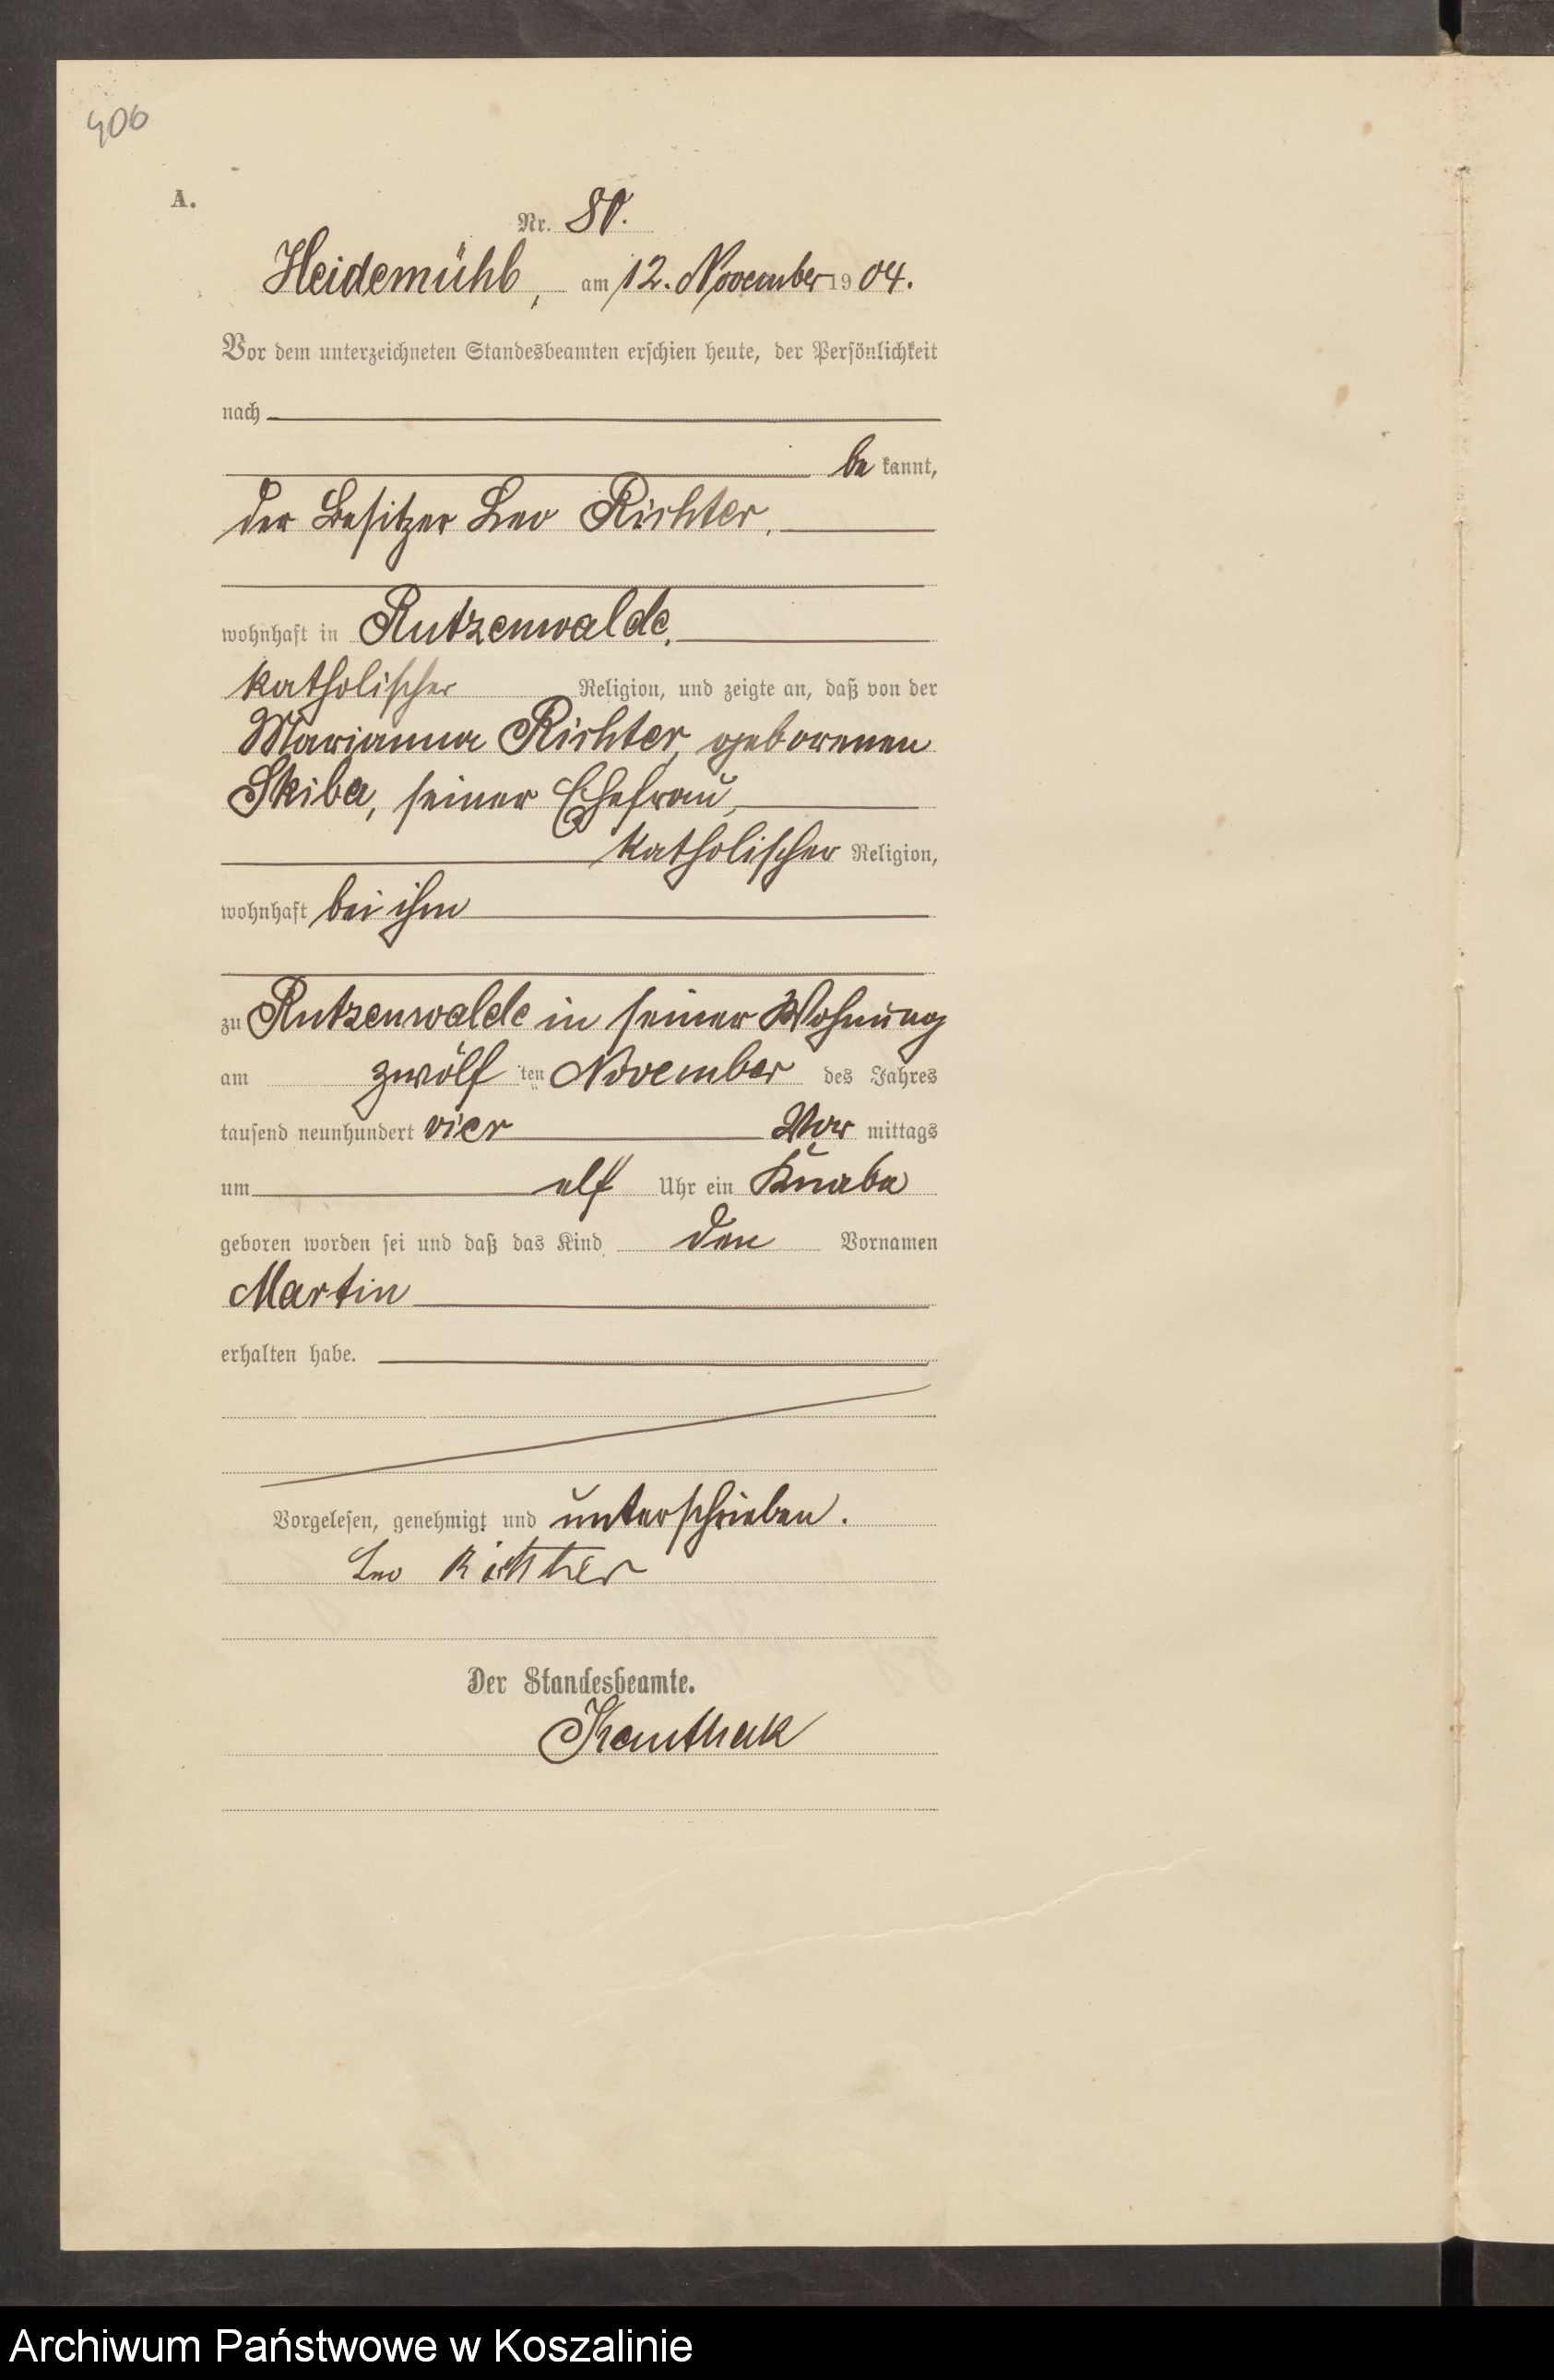 406
A.
Nr. 80.
Heidemühl, am 12. November 1904.
Vor dem unterzeichneten Standesbeamten erschien heute, der Persönlichkeit
nach
be kannt,
der Besitzer Leo Richter,
wohnhaft in Rutzenwalde,
katholischer Religion, und zeigte an, daß von der
Marianna Richter, geborenen
Skiba, seiner Ehefrau,
katholischer Religion,
wohnhaft bei ihm
zu Rutzenwalde in seiner Wohnung
am zwölf ten November des Jahres
tausend neunhundert vier Vor mittags
um elf Uhr ein Knabe
geboren worden sei und daß das Kind den Vornamen
Martin
erhalten habe.
Vorgelesen, genehmigt und unterschrieben.
Leo Richter
Der Standesbeamte.
Archiwum Państwowe w Koszalinie